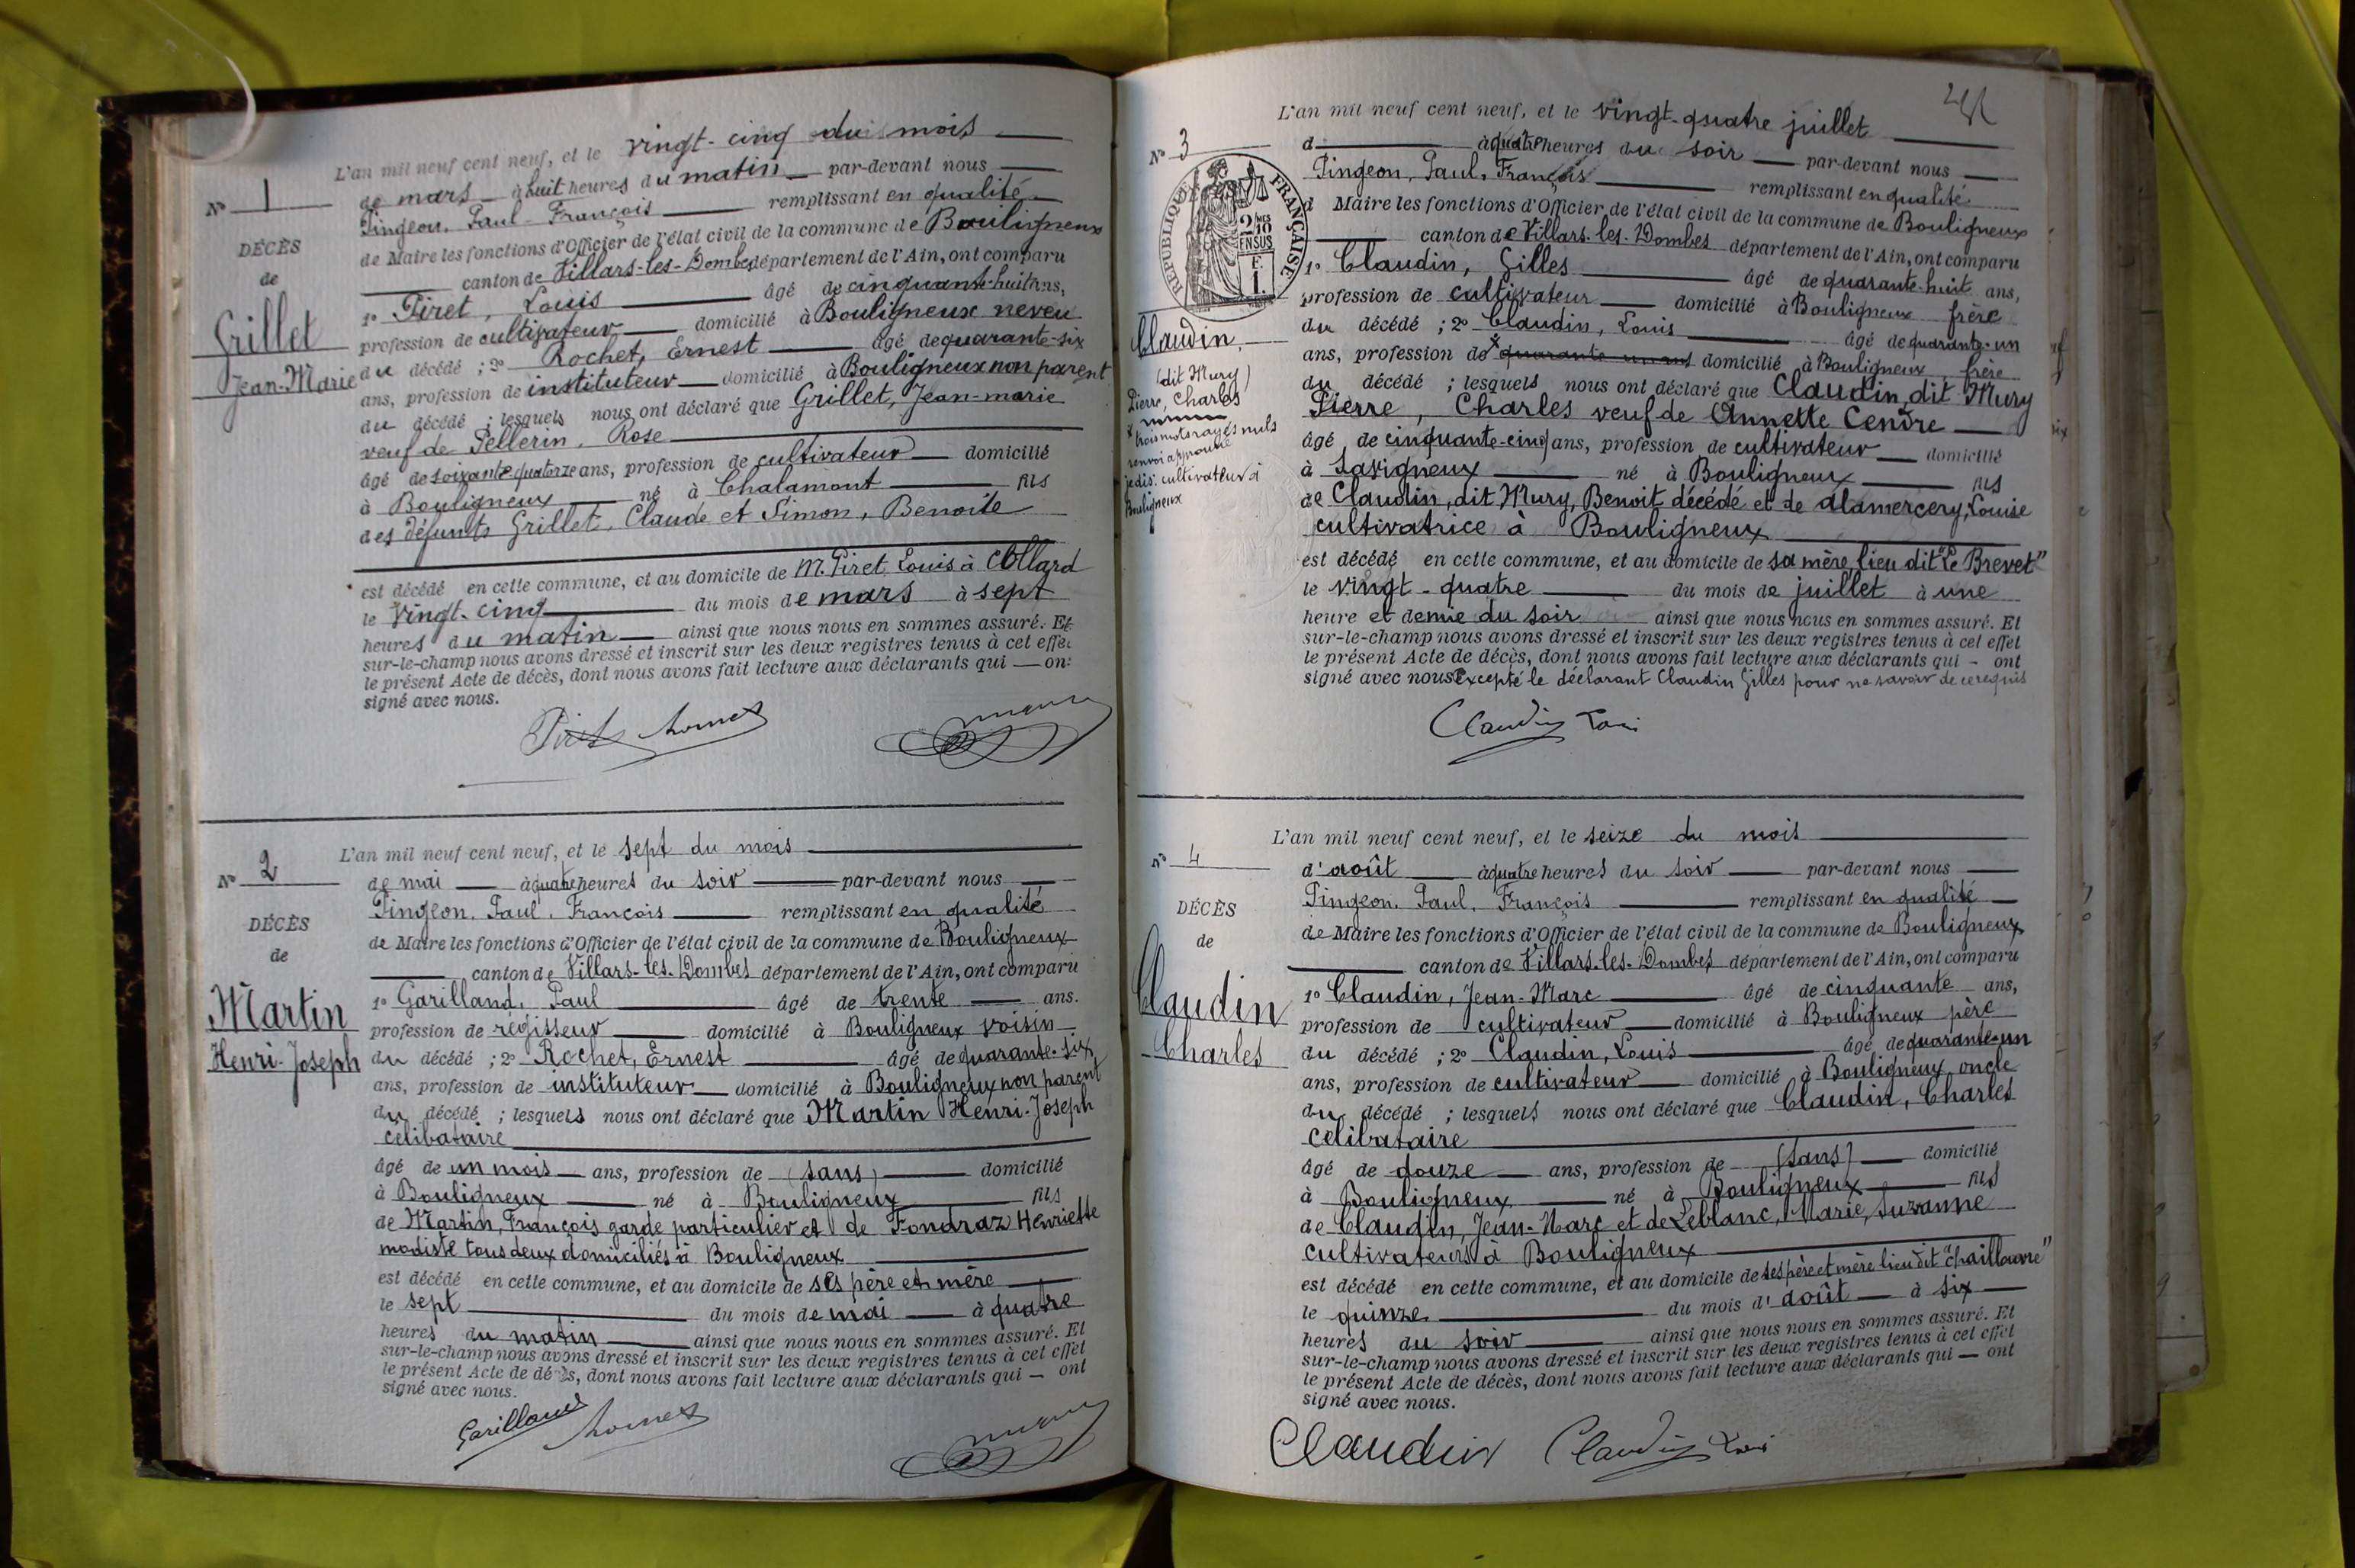 L'an mil neuf cent neuf, et le vingt-cinq du mois
N° 1
de mars à huit heures du matin par-devant nous
Pingeon, Paul-François remplissant en qualité
DÉCÈS
de Maire les fonctions d'Officier de l'état civil de la commune de Bouligneux
de
canton de Villars-les-Dombes département de l'Ain, ont comparu
1° Piret, Louis âgé de cinquante-huit ans,
Grillet
profession de cultivateur domicilié à Bouligneux neveu
Jean-Marie
du décédé ; 2° Rochet, Ernest âgé de quarante-six
ans, profession de instituteur domicilié à Bouligneux non parent
du décédé ; lesquels nous ont déclaré que Grillet, Jean-marie
veuf de Pellerin, Rose
âgé de soixante-quatorze ans, profession de cultivateur domicilié
à Bouligneux né à Chalamont fils
des défunts Grillet, Claude et Simon, Benoite
est décédé en cette commune, et au domicile de M. Piret Louis à
le vingt-cinq du mois de mars à sept
heures du matin ainsi que nous nous en sommes assuré. Et
sur-le-champ nous avons dressé et inscrit sur les deux registres tenus à cet effet
le présent Acte de décès, dont nous avons fait lecture aux déclarants qui — ont
signé avec nous.
Piret
L'an mil neuf cent neuf, et le sept du mois
N° 2
de mai à quatre heures du soir par-devant nous
Pingeon, Paul, François remplissant en qualité
DÉCÈS
de Maire les fonctions d'Officier de l'état civil de la commune de Bouligneux
de
canton de Villars-les-Dombes département de l'Ain, ont comparu
1° Garilland, Paul âgé de trente ans.
Martin
profession de régisseur domicilié à Bouligneux voisin
Henri-Joseph
du décédé ; 2° Rochet, Ernest âgé de quarante-six
ans, profession de instituteur domicilié à Bouligneux non parent
du décédé ; lesquels nous ont déclaré que Martin Henri-Joseph
célibataire
âgé de un mois ans, profession de (sans) domicilié
à Bouligneux né à Bouligneux fils
de Martin, François garde particulier et de Fondraz Henriette
modiste tous deux domiciliés à Bouligneux
est décédé en cette commune, et au domicile de ses père et mère
le sept du mois de mai à quatre
heures du matin ainsi que nous nous en sommes assuré. Et
sur-le-champ nous avons dressé et inscrit sur les deux registres tenus à cet effet
le présent Acte de décès, dont nous avons fait lecture aux déclarants qui — ont
signé avec nous.
Garilland
L'an mil neuf cent neuf, et le vingt-quatre juillet
N° 3
d à quatre heures du soir par-devant nous
Pingeon, Paul, François remplissant en qualité
d Maire les fonctions d'Officier de l'état civil de la commune de Bouligneux
canton de Villars-les-Dombes département de l'Ain, ont comparu
RÉPUBLIQUE FRANÇAISE
2/10 EN SUS
1° Claudin, Gilles âgé de quarante-huit ans,
profession de cultivateur domicilié à Bouligneux frère
du décédé ; 2° Claudin, Louis âgé de quarante-un
ans, profession de x quarante un ans domicilié à Bouligneux, frère
du décédé ; lesquels nous ont déclaré que Claudin, dit Mury
Pierre, Charles veuf de Annette Cendre
âgé de cinquante-cinq ans, profession de cultivateur domicilié
à Savigneux né à Bouligneux fils
de Claudin, dit Mury, Benoit décédé et de Alamercery, Louise
cultivatrice à Bouligneux
est décédé en cette commune, et au domicile de sa mère, lieu dit "Le Brevet"
le vingt-quatre du mois de juillet à une
heure et demie du soir ainsi que nous nous en sommes assuré. Et
sur-le-champ nous avons dressé et inscrit sur les deux registres tenus à cet effet
le présent Acte de décès, dont nous avons fait lecture aux déclarants qui — ont
signé avec nous Excepté le déclarant Claudin Gilles pour ne savoir de ce requis
Claudin
(dit Mury)
Pierre, Charles
x trois mots rayés nuls
renvoi approuvé
je dis: cultivateur à
Bouligneux
Claudin Louis
L'an mil neuf cent neuf, et le seize du mois
N° 4
d'août à quatre heures du soir par-devant nous
Pingeon, Paul, François remplissant en qualité
DÉCÈS
de Maire les fonctions d'Officier de l'état civil de la commune de Bouligneux
de
canton de Villars-les-Dombes département de l'Ain, ont comparu
Claudin
1° Claudin, Jean-Marc âgé de cinquante ans,
profession de cultivateur domicilié à Bouligneux père
Charles
du décédé ; 2° Claudin, Louis âgé de quarante-un
ans, profession de cultivateur domicilié à Bouligneux, oncle
du décédé ; lesquels nous ont déclaré que Claudin, Charles
célibataire
âgé de douze ans, profession de (sans) domicilié
à Bouligneux né à Bouligneux fils
de Claudin, Jean-Marc et de Leblanc, Marie, Suzanne
cultivateurs à Bouligneux
est décédé en cette commune, et au domicile de ses père et mère lieu dit
le quinze du mois d'août à six
heures du soir ainsi que nous nous en sommes assuré. Et
sur-le-champ nous avons dressé et inscrit sur les deux registres tenus à cet effet
le présent Acte de décès, dont nous avons fait lecture aux déclarants qui — ont
signé avec nous.
Claudin Claudin Louis